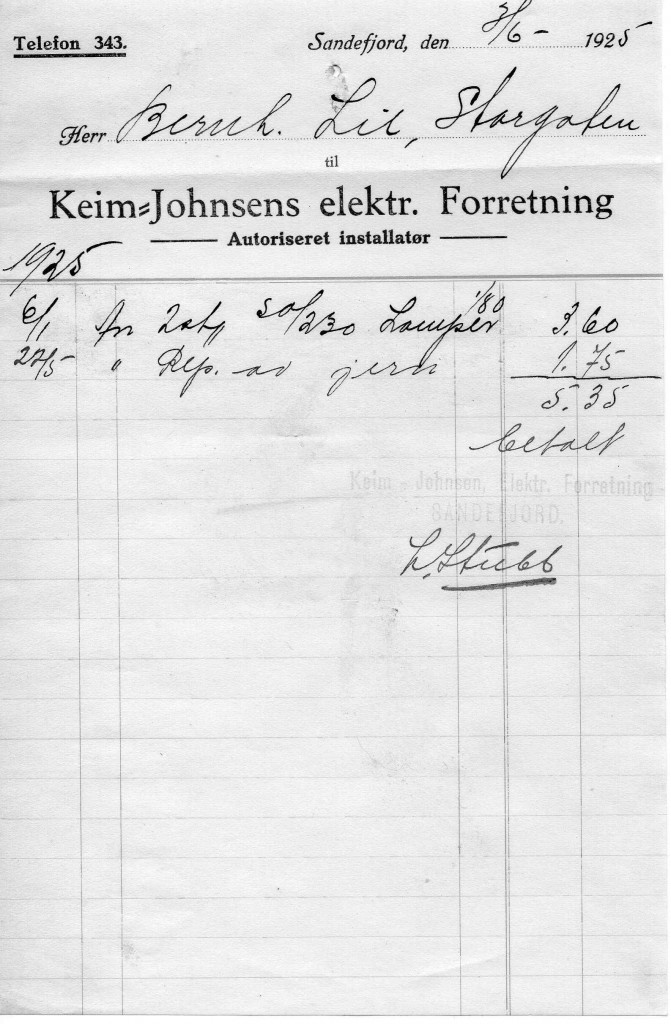 Telefon 343.
Sandefjord, den 3/6 - 1925
Herr Bernh. Lie, Storgaten
til
Keim-Johnsens elektr. Forretning
Autoriseret installatør
1925
6/1 fr 2 stk 50/230 Lamper 1/80 3.60
27/5 " Rep. av jern 1.75
5.35
betalt
Keim-Johnsen, Elektr. Forretning
SANDEFJORD.
L. Stubb